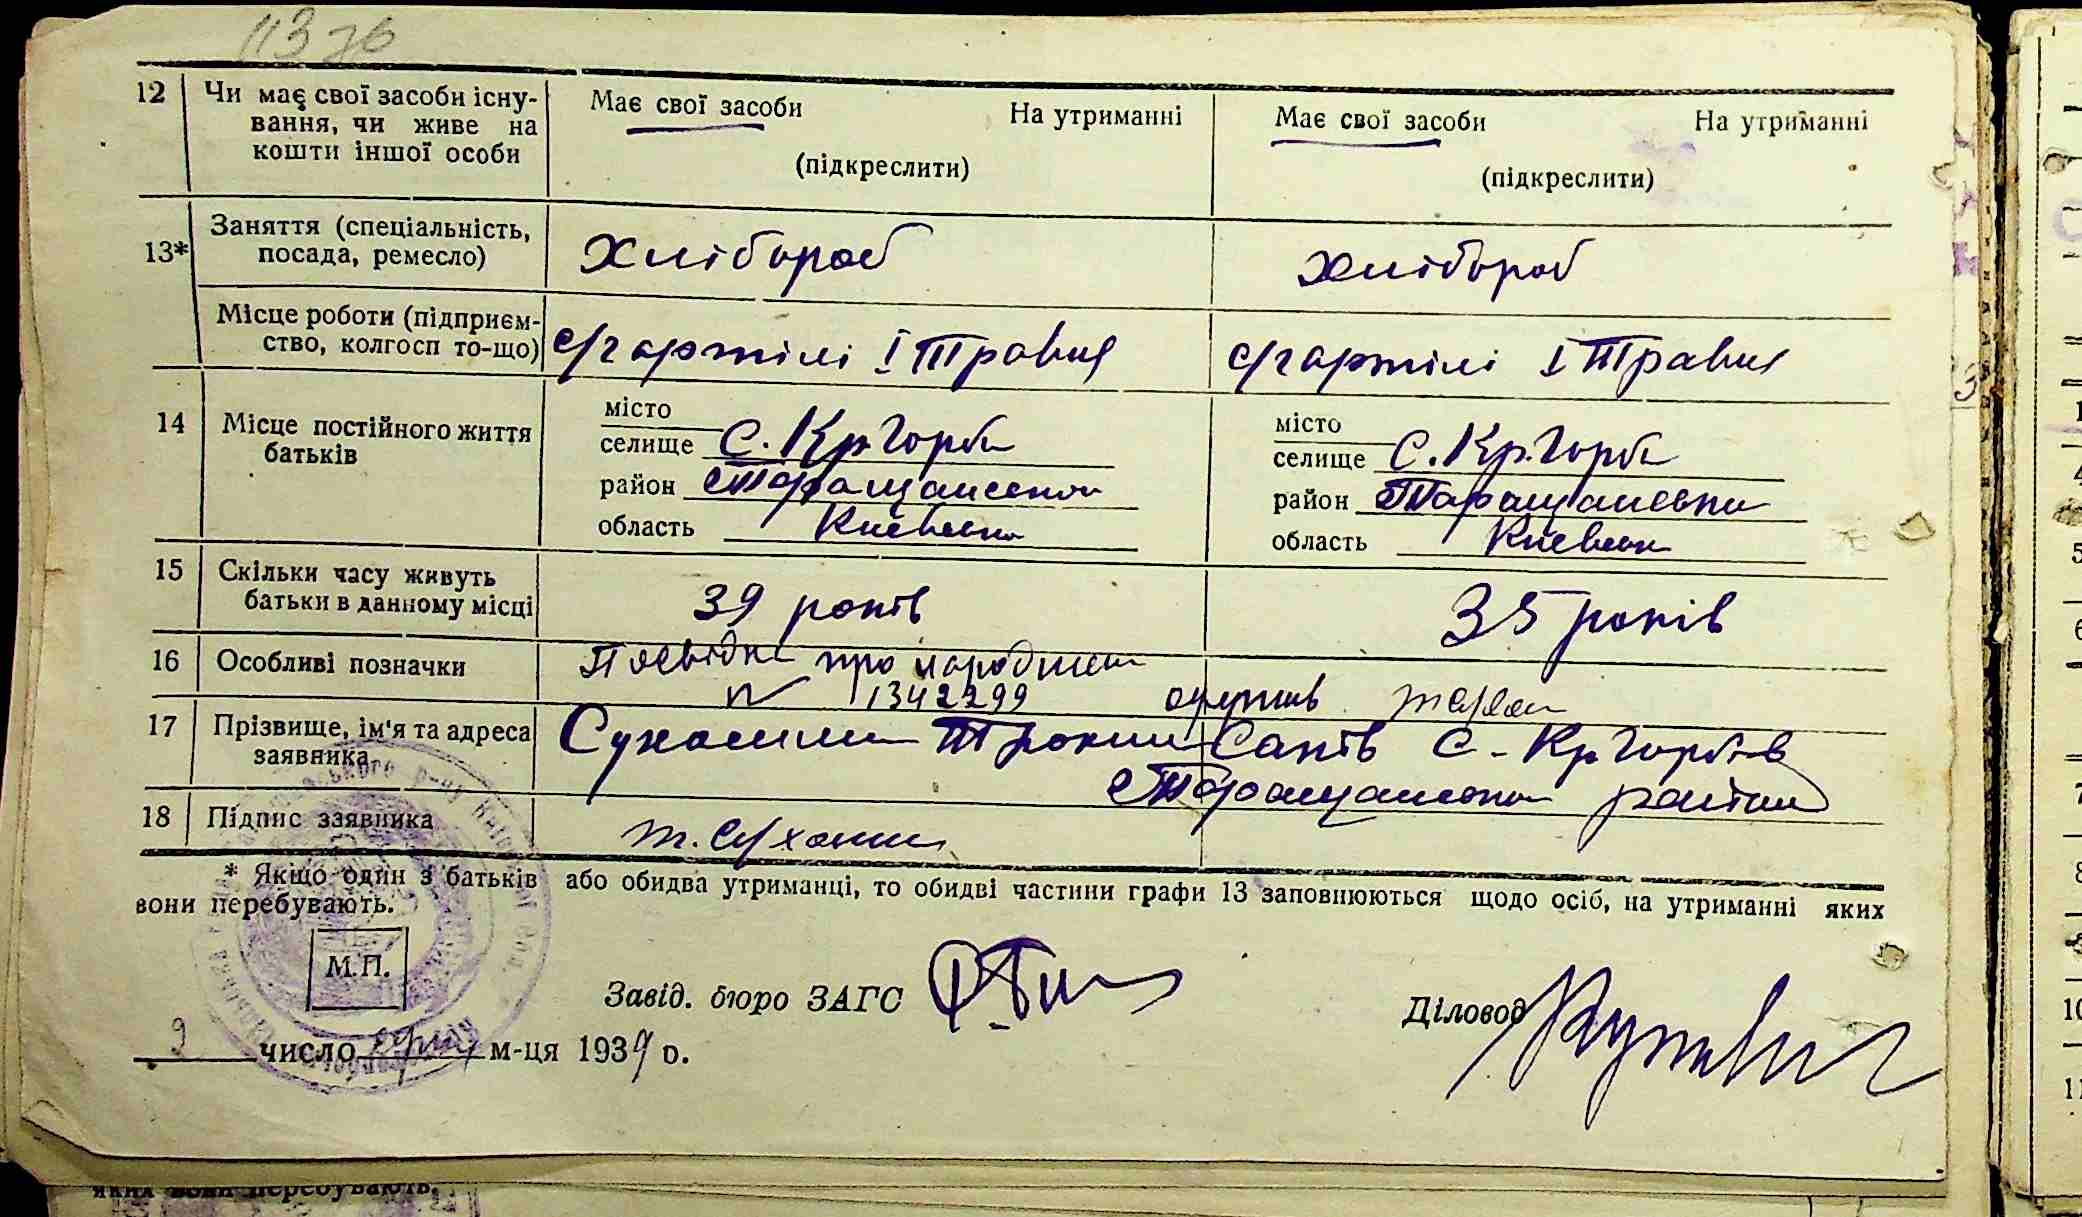 113 зв
12 Чи має свої засоби існу-
вання, чи живе на
кошти іншої особи
Має свої засоби На утриманні
(підкреслити)
Має свої засоби На утриманні
(підкреслити)
13* Заняття (спеціальність,
посада, ремесло)
Хлібороб
Хлібороб
Місце роботи (підприєм-
ство, колгосп то-що)
с/г артілі І Травня
с/г артілі І Травня
14 Місце постійного життя
батьків
місто
селище С. Кр. Горби
район Таращанськ
область Київська
місто
селище С. Кр. Горби
район Таращанськи
область Київськ
15 Скільки часу живуть
батьки в данному місці
39 років
35 років
16 Особливі позначки
Посвідку про народжен
№ 1342299 одержив
17 Прізвище, ім'я та адреса
заявника
С. Кр Горбів
Таращанського району
18 Підпис заявника
* Якщо один з батьків або обидва утриманці, то обидві частини графи 13 заповнюються щодо осіб, на утриманні яких
вони перебувають.
М.П.
Завід. бюро ЗАГС
Діловод
9 число м-ця 1939 о.
яких вони перебувають.
10